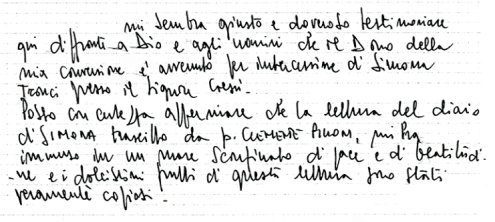 mi sembra giusto e doveroso testimoniare
qui di fronte a Dio e agli uomini che il Dono della
mia conversione è avvenuto per intercessione di Simona
Tronci presso il Signore Gesù.
Posso con certezza affermare che la lettura del diario
di SIMONA trascritto da p. CLEMENTE PILLONI, mi ha
immerso in un mare sconfinato di pace e di beatitudi-
ne e i dolcissimi frutti di questa lettura sono stati
veramente copiosi.